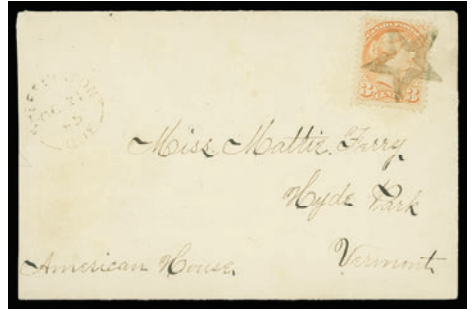 3 3
Miss Mattie Furry
Hyde Park
Vermont
American House